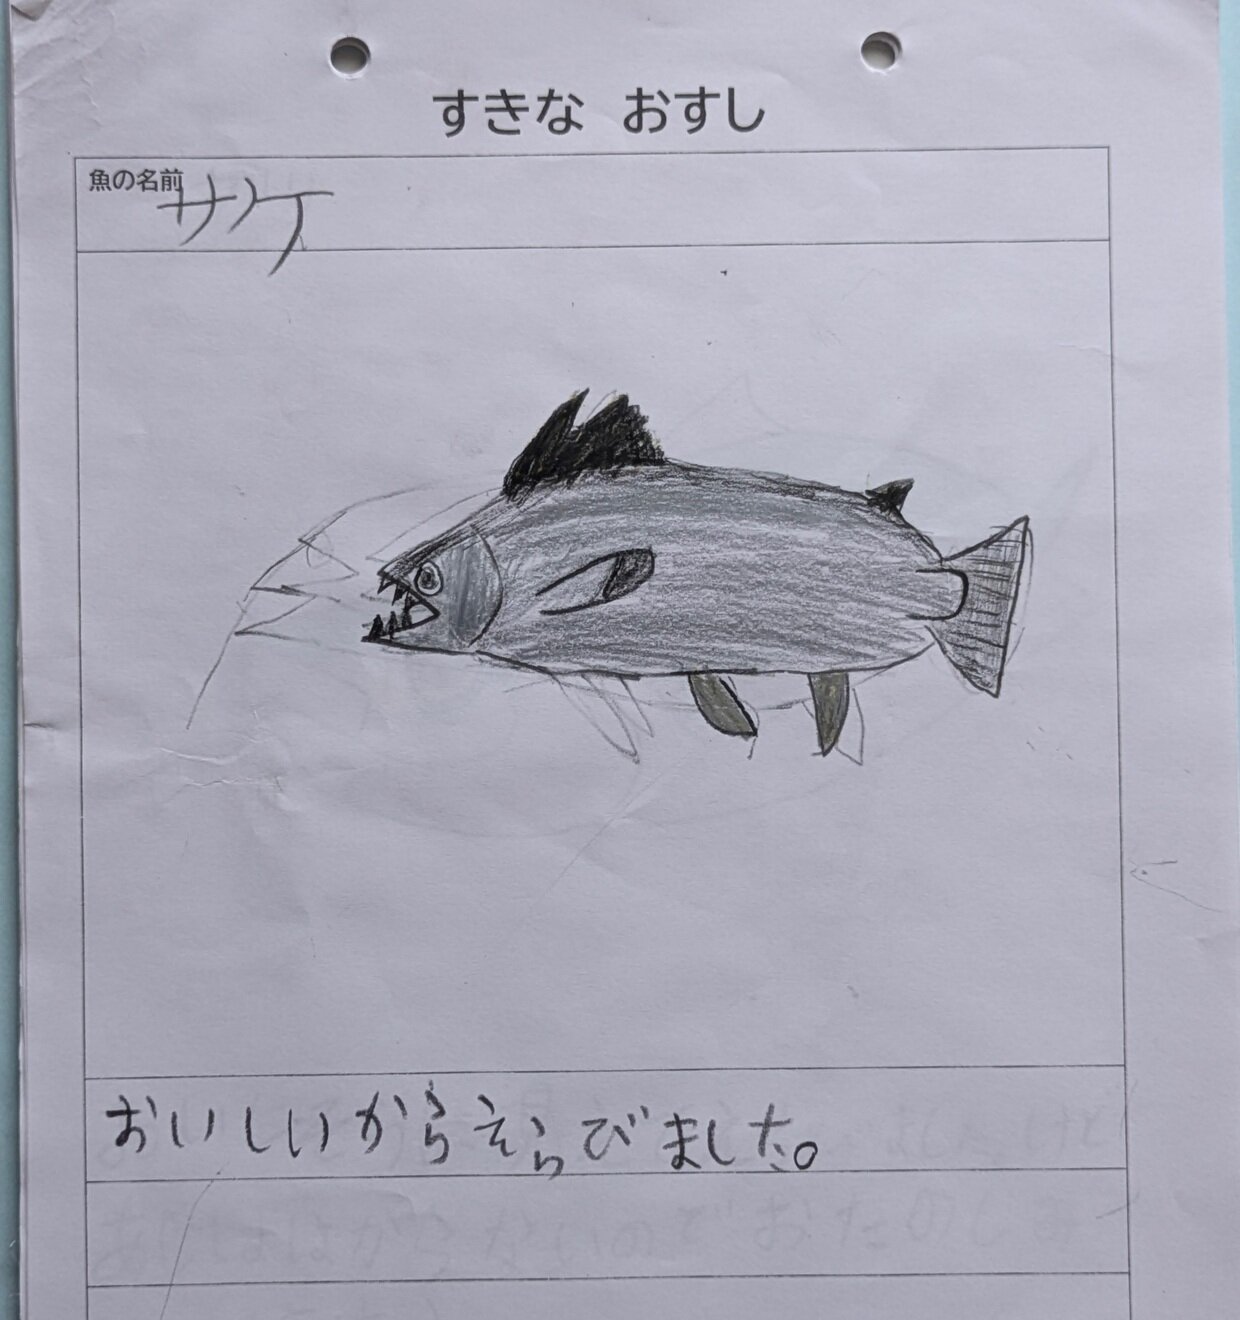 すきな おすし
魚の名前
サケ
おいしいからえらびました。